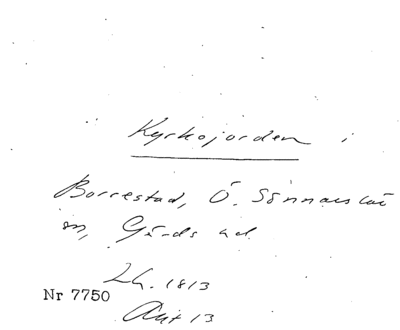 Kyrkojorden i
Borrestad, Ö. Sönnarslöv
sn, Gärds hd.
Lh. 1813
Nr 7750
Akt 13